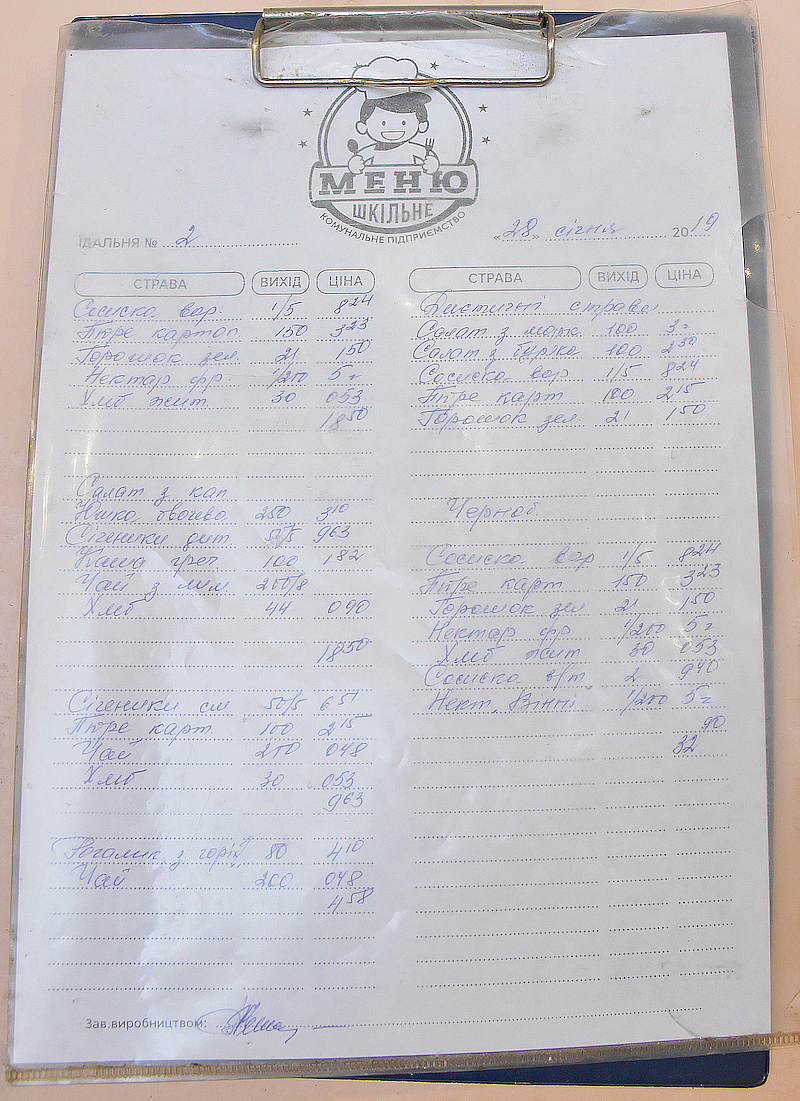 МЕНЮ
ШКІЛЬНЕ
КОМУНАЛЬНЕ ПІДПРИЄМСТВО
ЇДАЛЬНЯ № 2
«28» січня 2019
СТРАВА ВИХІД ЦІНА
Сосиска вар. 1/5 8 24
Пюре картоп 150 3 23
Горошок зел. 21 1 50
Нектар фр. 1/200 5 =
Хліб жит. 30 0 53
18 50
Салат з кап
Юшка овочева 250 3 10
Січеники дит 50/5 9 63
Каша греч 100 1 82
Чай з лим. 200/8
Хліб 44 0 90
18 50
Січеники см 50/5 6 51
Пюре карт. 100 2 15
Чай 200 0 48
Хліб 30 0 53
9 63
Рогалик з горіх 80 4 10
Чай 200 0 48
4 58
СТРАВА ВИХІД ЦІНА
Дієтичні страви
Салат з морк 100 3 =
Салат з буряка 100 2 30
Сосиска вар 1/5 8 24
Пюре карт 100 2 15
Горошок зел. 21 1 50
Чорноб.
Сосиска вар 1/5 8 24
Пюре карт 150 3 23
Горошок зел 21 1 50
Нектар фр 1/200 5 =
Хліб жит 30 0 53
Сосиска в/т 2 9 40
Нект. „Вінні" 1/200 5 =
32 90
Зав.виробництвом: